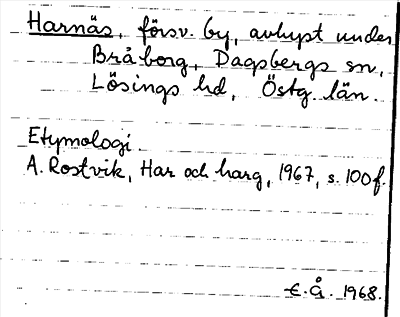 Harnäs, försv. by, avhyst under
Bråborg, Dagsbergs sn,
Lösings hd, Östg. län.
Etymologi
A. Rostvik, Har och harg, 1967, s. 100 f.
E.Å. 1968.